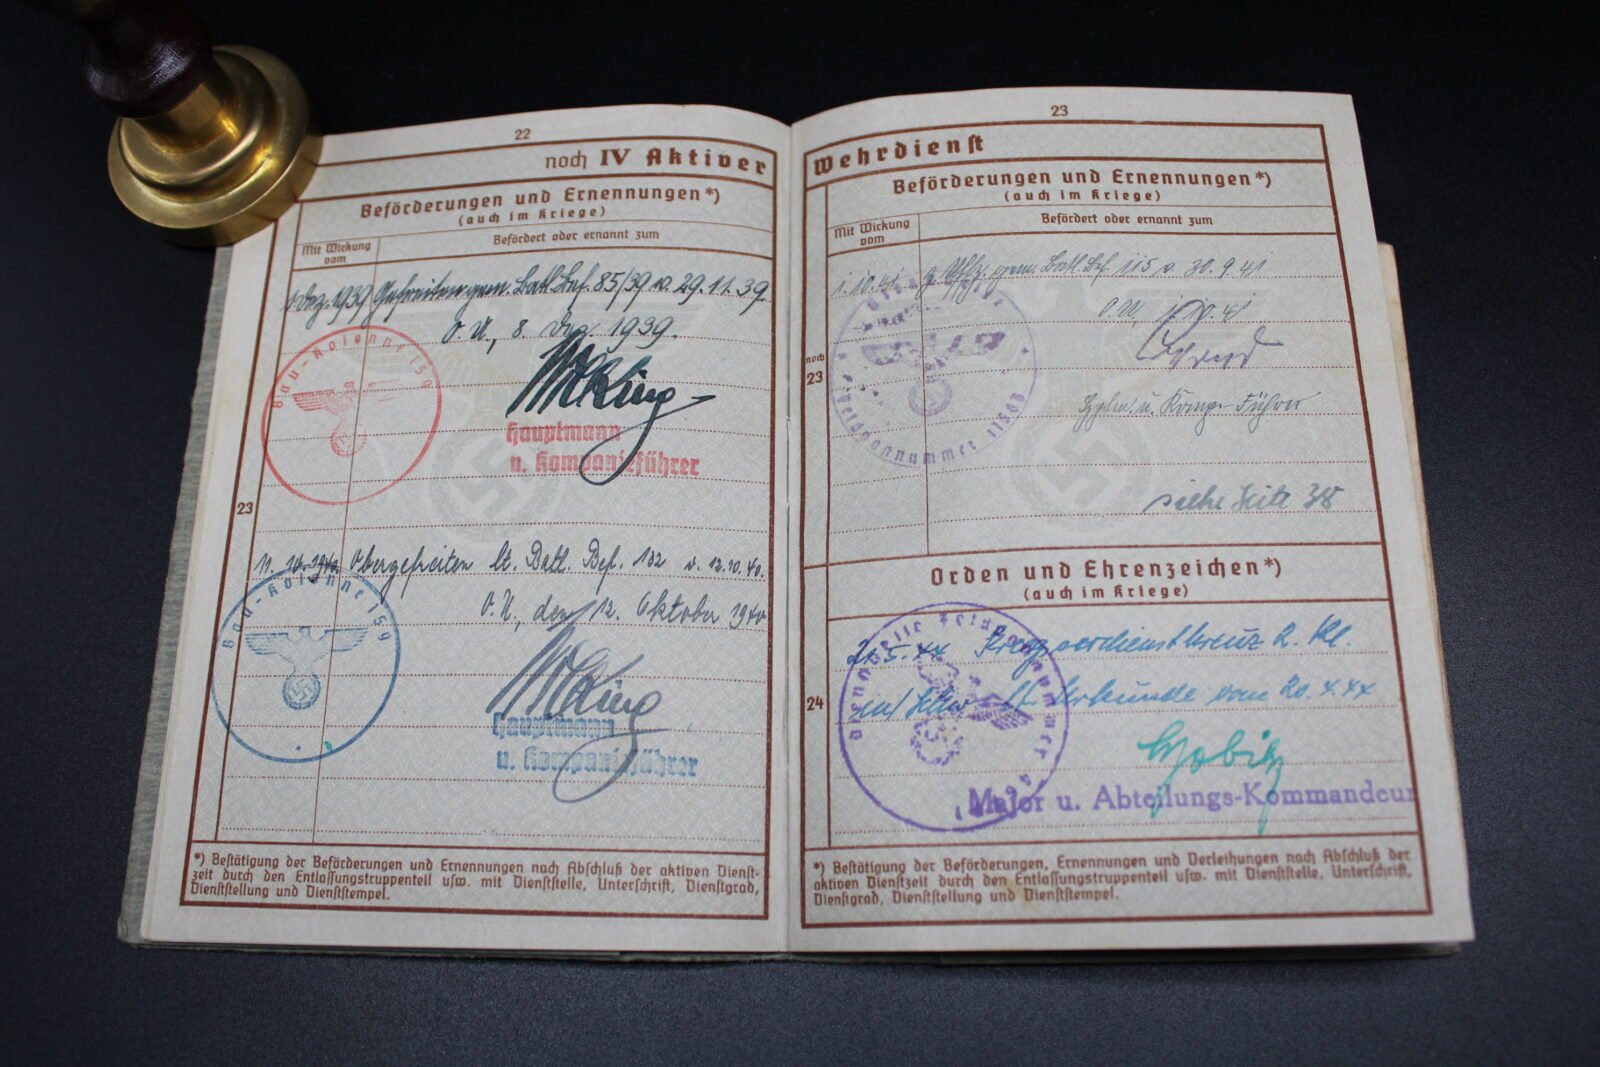 22
noch IV Aktiver
Beförderungen und Ernennungen*)
(auch im Kriege)
Mit Wirkung vom
Befördert oder ernannt zum
1. Dez. 1939 Gefreiten gem. Batl. Bef. 85/39 v. 29.11.39
O.U., 8. Dez. 1939.
Bau-Kolonne 159
Hauptmann
u. Kompanieführer
23
11.10.1940 Obergefreiten lt. Batl. Bef. 132 v. 12.10.40.
O.U., den 12. Oktober 1940
Bau-Kolonne 159
Hauptmann
u. Kompanieführer
*) Bestätigung der Beförderungen und Ernennungen nach Abschluß der aktiven Dienst-
zeit durch den Entlassungstruppenteil usw. mit Dienststelle, Unterschrift, Dienstgrad,
Dienststellung und Dienststempel.
23
Wehrdienst
Beförderungen und Ernennungen*)
(auch im Kriege)
Mit Wirkung vom
Befördert oder ernannt zum
1.10.41 gem. Batl. Bef. 115 v. 30.9.41
O.U., 1.10.41
noch
23
Feldpostnummer
Hptm. u. Komp. Führer
siehe Seite 38
Orden und Ehrenzeichen*)
(auch im Kriege)
Dienststelle Feldpostnummer
21.5.44 Kriegsverdienstkreuz 2. Kl.
m/ Schw. lt. Urkunde vom 20.4.44
24
Major u. Abteilungs-Kommandeur
*) Bestätigung der Beförderungen, Ernennungen und Verleihungen nach Abschluß der
aktiven Dienstzeit durch den Entlassungstruppenteil usw. mit Dienststelle, Unterschrift,
Dienstgrad, Dienststellung und Dienststempel.